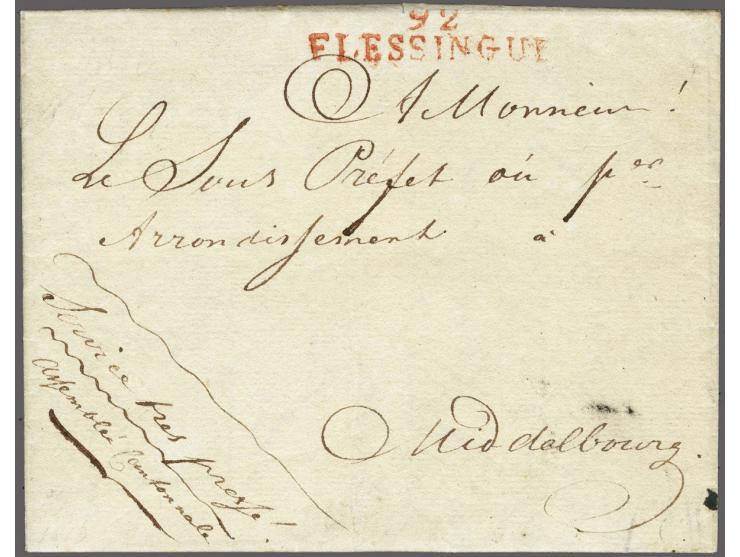 92
FLESSINGUE
A Monsieur!
Le Sous Préfet où per
Arrondissement à
Middelbourg.
Service tres pressé!
assemblé Cantonnale